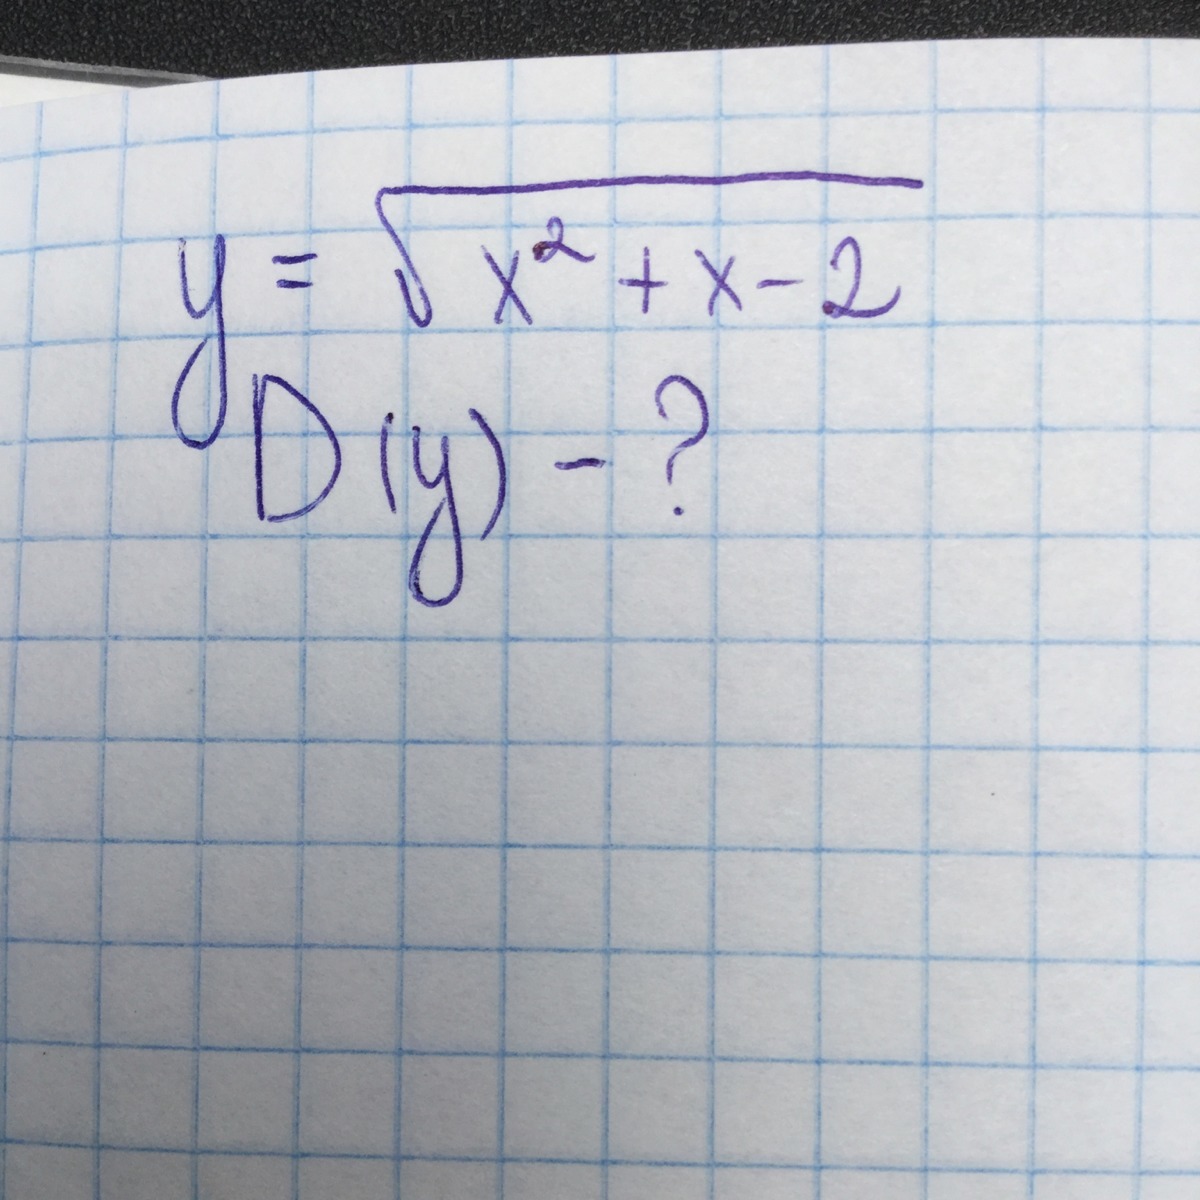 y = √(x² + x - 2)
D(y) - ?